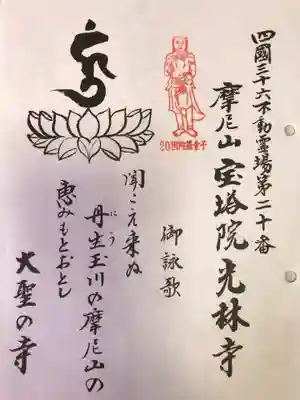 四國三十六不動霊場第二十番
摩尼山宝塔院光林寺
20因陀羅童子
御詠歌
聞こえ来ぬ
にう
丹生玉川の摩尼山の
恵みもとおとし
大聖の寺